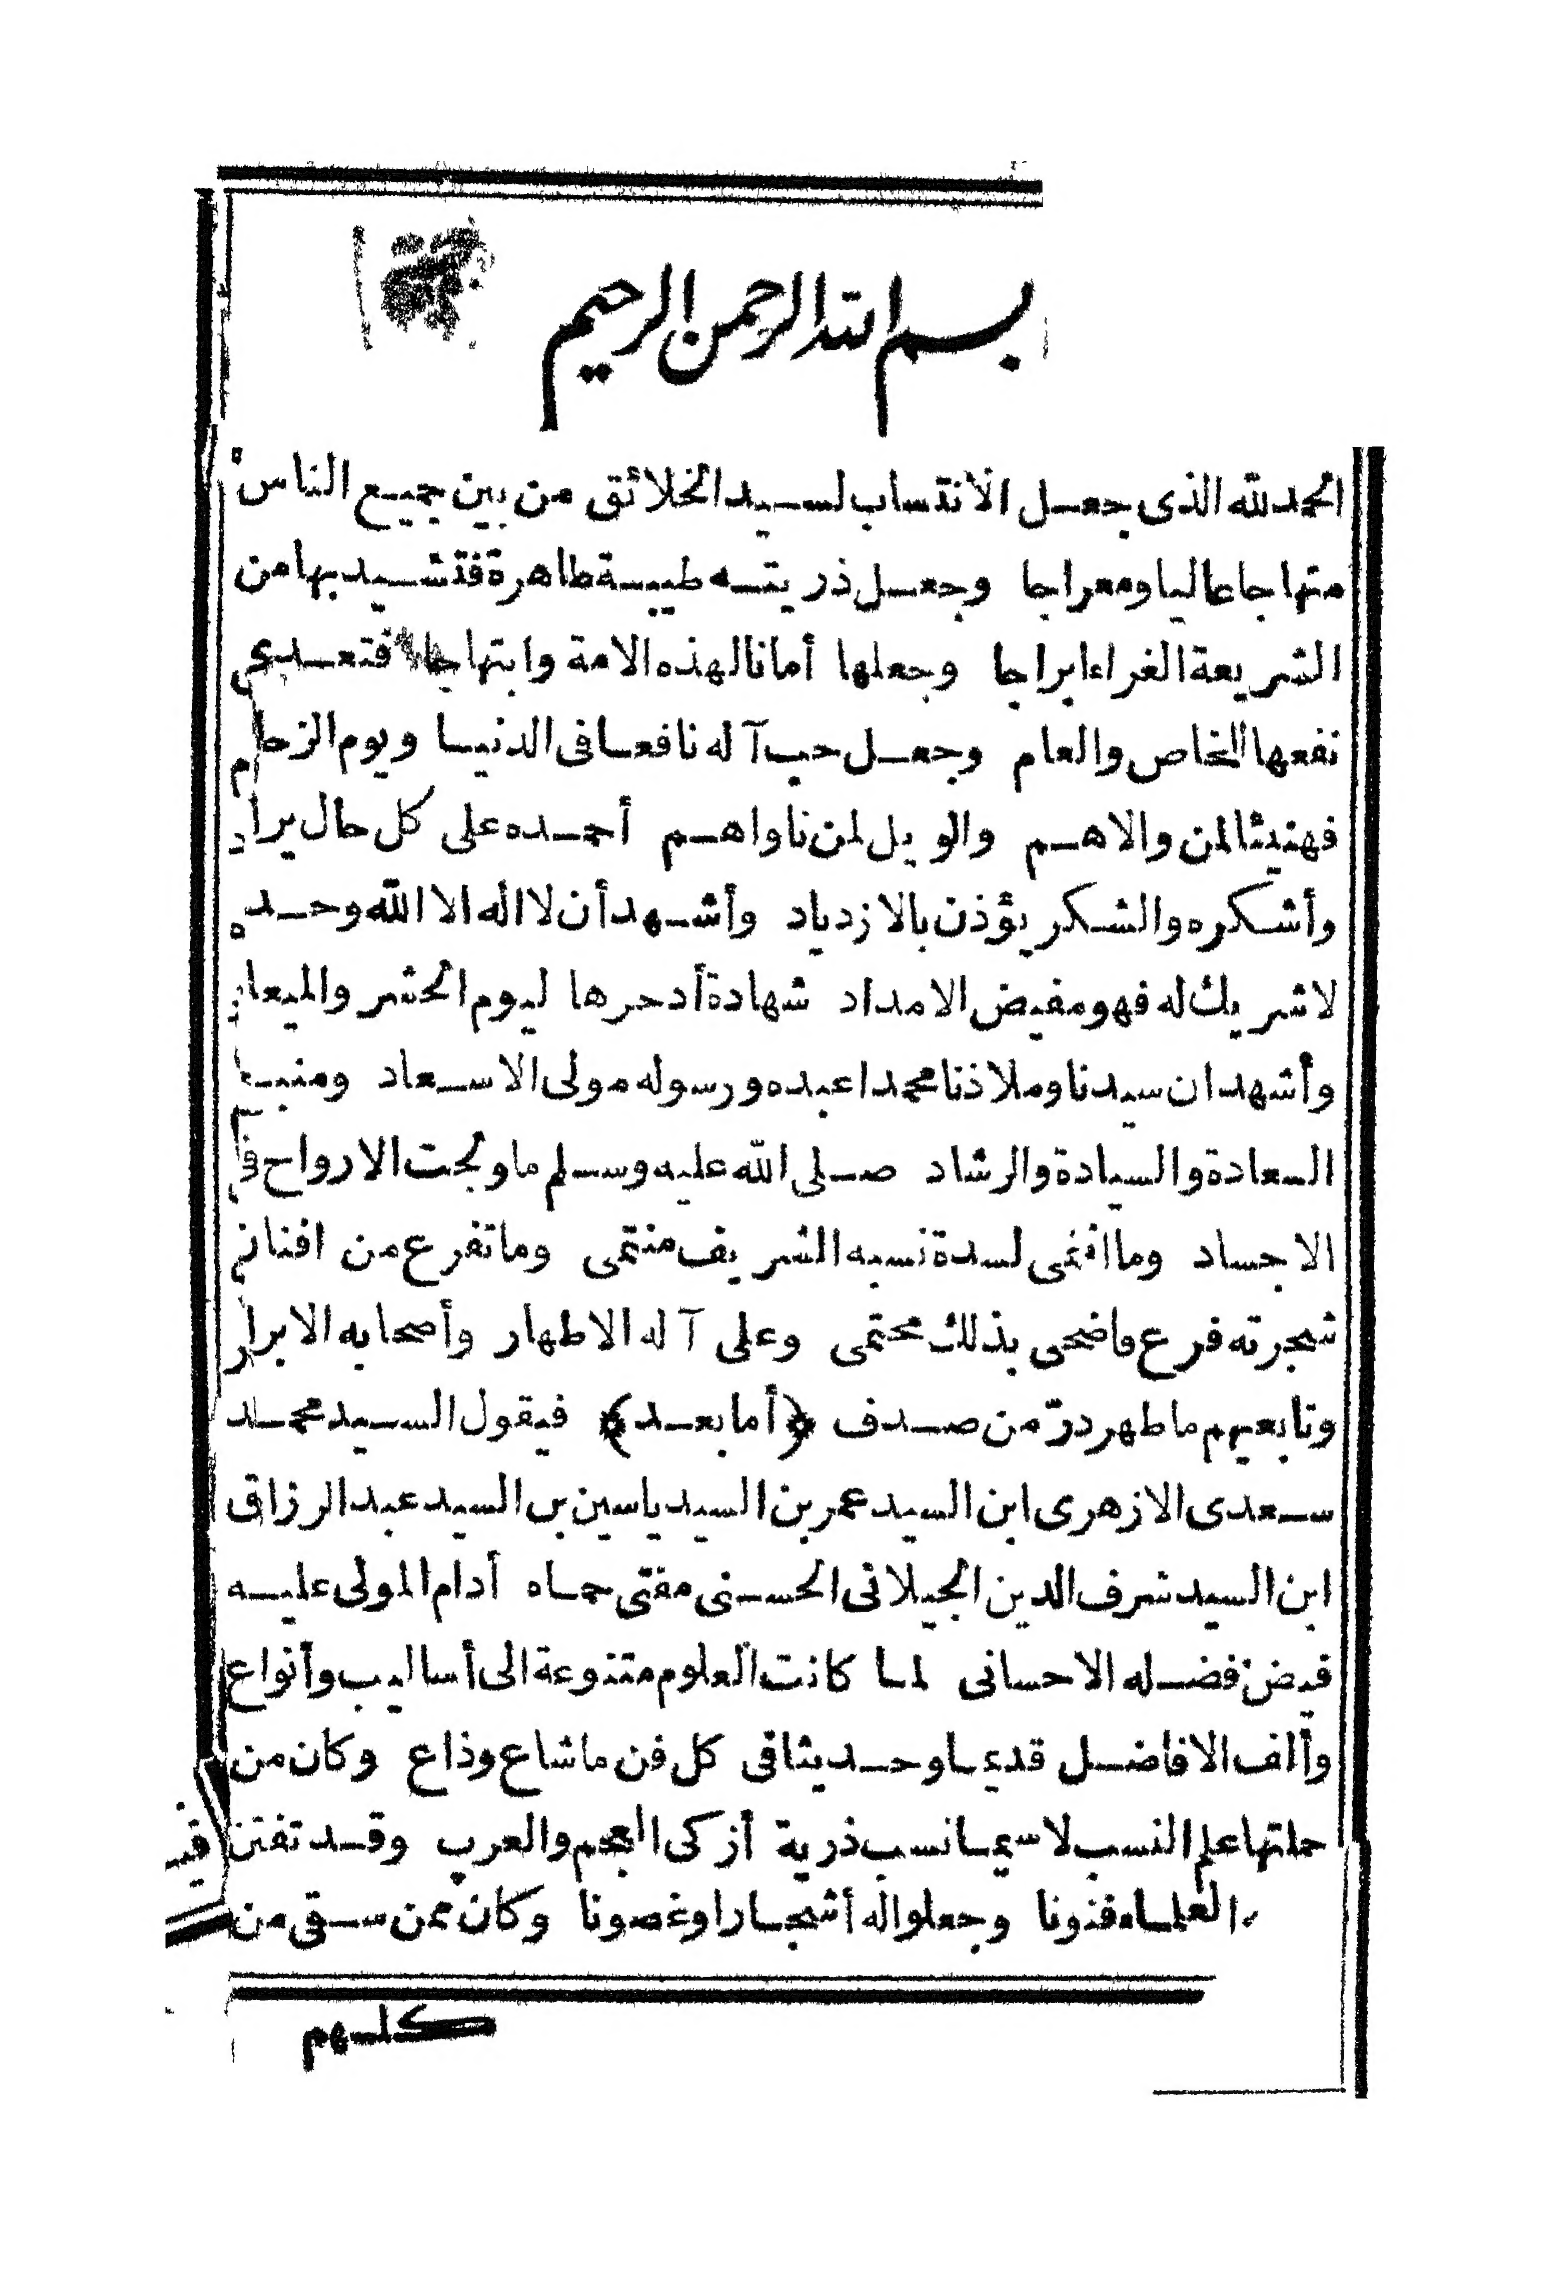 بسم الله الرحمن الرحيم
الحمد لله الذى جعل الانتساب لسيد الخلائق من بين جميع الناس
منهاجا عاليا ومعراجا وجعل ذريته طيبة طاهرة فتشيد بها من
الشريعة الغراء ابراجا وجعلها أمانا لهذه الامة وابتهاجا فتعدى
نفعها الخاص والعام وجعل حب آله نافعا فى الدنيا ويوم الزحام
فهنيئا لمن والاهم والويل لمن ناواهم أحمده على كل حال يراد
وأشكره والشكر يؤذن بالازدياد وأشهد أن لا اله الا الله وحده
لا شريك له فهو مفيض الامداد شهادة أدخرها ليوم الحشر والميعاد
وأشهد ان سيدنا وملاذنا محمدا عبده ورسوله مولى الاسعاد ومنبع
السعادة والسيادة والرشاد صلى الله عليه وسلم ما ولجت الارواح فى
الاجساد وما انتمى لسدة نسبه الشريف منتمى وما تفرع من افنان
شجرته فرع فاضحى بذلك محتمى وعلى آله الاطهار وأصحابه الابرار
وتابعيهم ما ظهر درّ من صدف ﴿أما بعد﴾ فيقول السيد محمد
سعدى الازهرى ابن السيد عمر بن السيد ياسين بن السيد عبد الرزاق
ابن السيد شرف الدين الجيلانى الحسنى مفتى حماه أدام المولى عليه
فيض فضله الاحسانى لما كانت العلوم متنوعة الى أساليب وأنواع
وألف الافاضل قديما وحديثا فى كل فن ما شاع وذاع وكان من
جملتها علم النسب لا سيما نسب ذرية أزكى العجم والعرب وقد تفنن فيه
العلماء فنونا وجعلوا له أشجارا وغصونا وكان ممن سبق من
كلهم